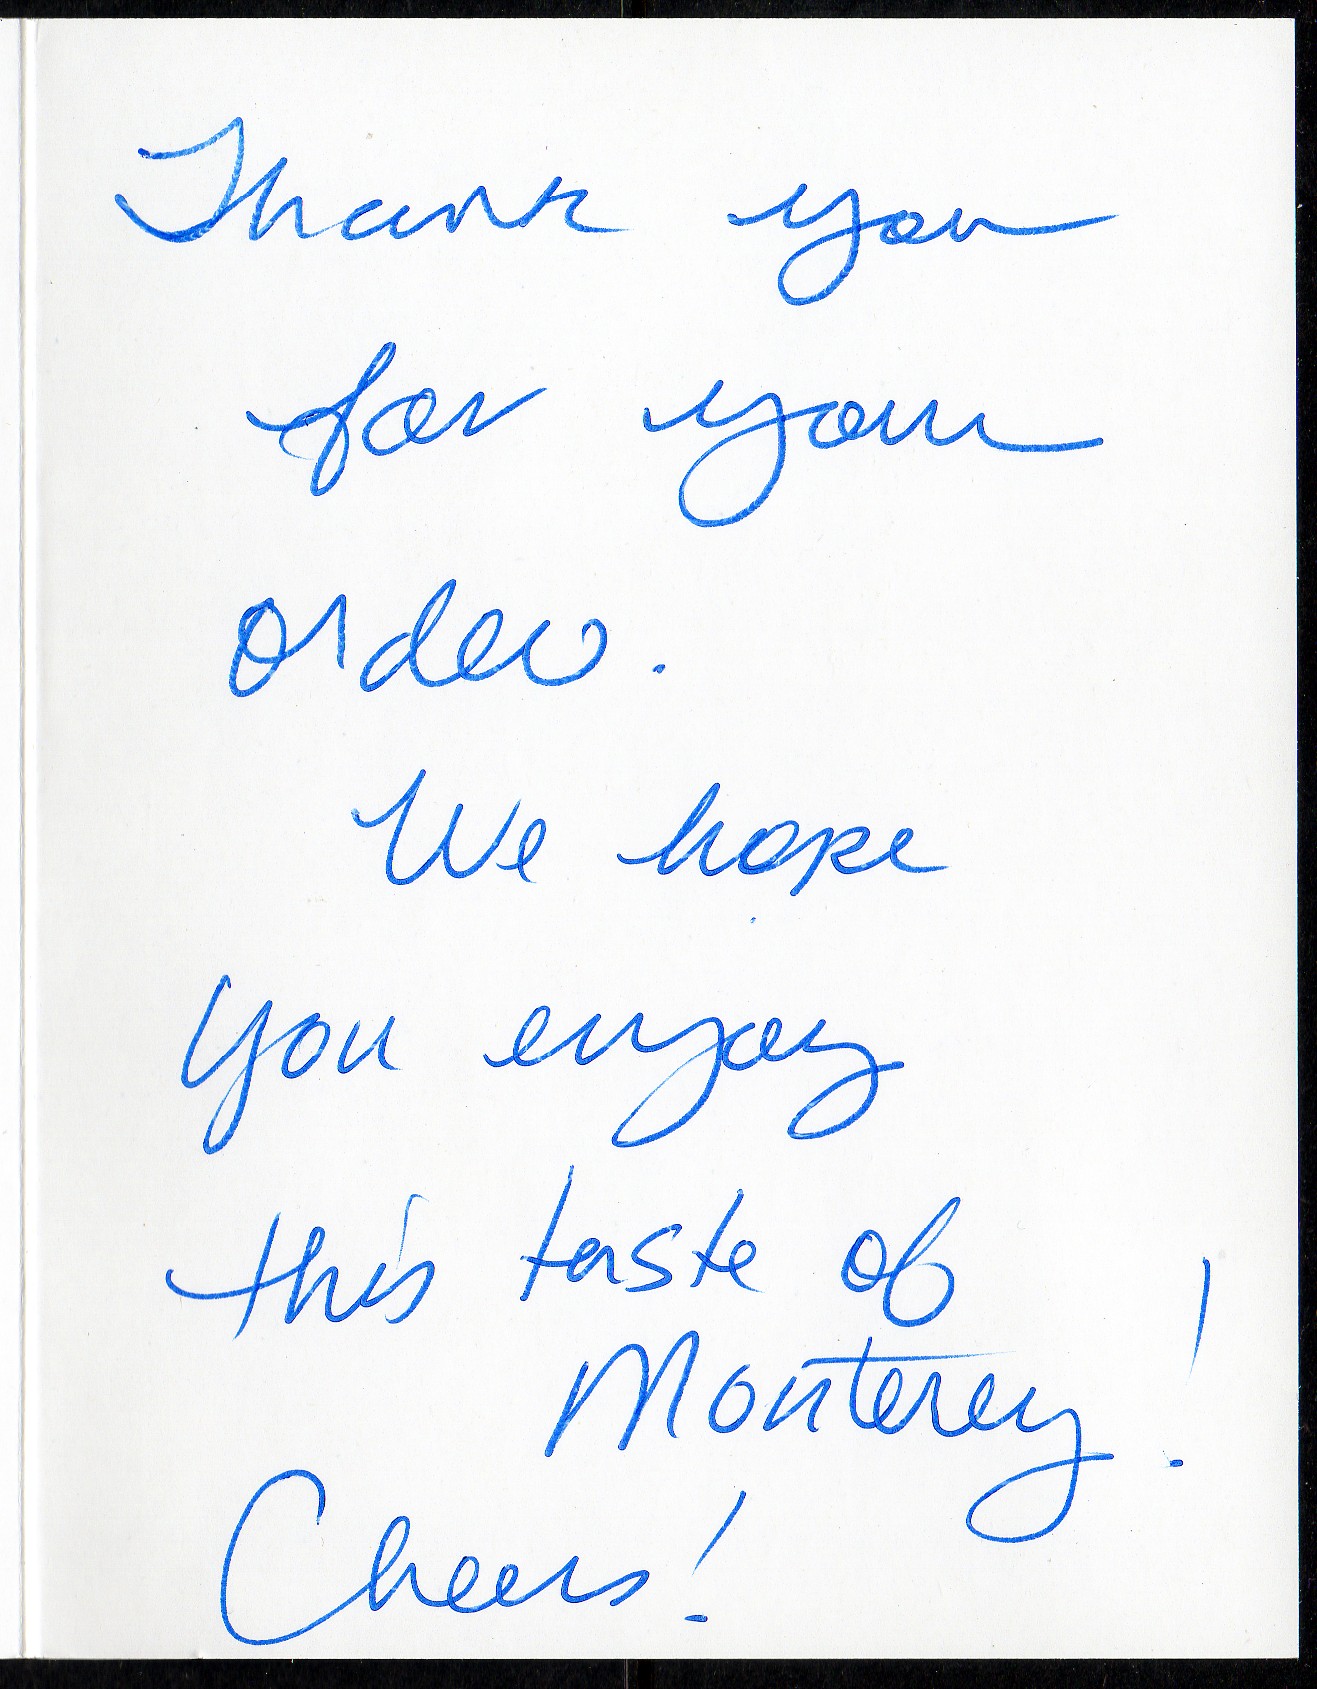 Thank you
for your
order.
We hope
you enjoy
this taste of
Monterey!
Cheers!